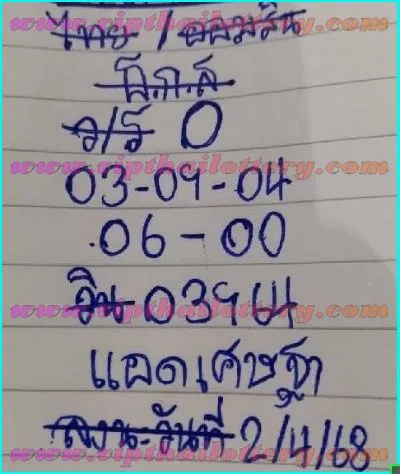 ไทย / ออมสิน
ธ.ก.ส
ว/ร์ 0
www.vipthailottery.com
03-09-04
06-00
www.vipthailottery.com
วิน 039
แอดเศษฐา
วันที่ 2/4/68
www.vipthailottery.com